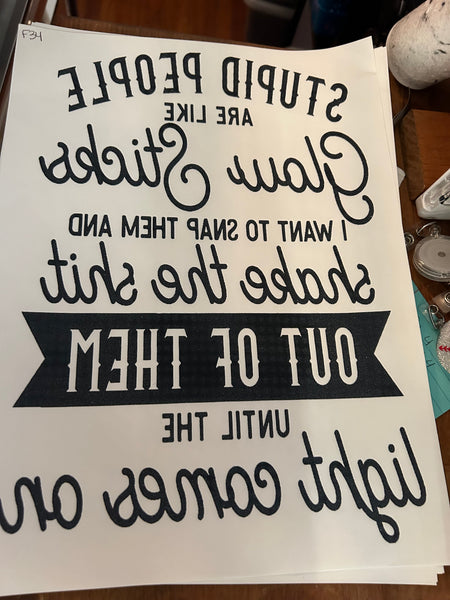 F34
STUPID PEOPLE
ARE LIKE
Glow Sticks
I WANT TO SNAP THEM AND
shake the shit
OUT OF THEM
UNTIL THE
light comes on